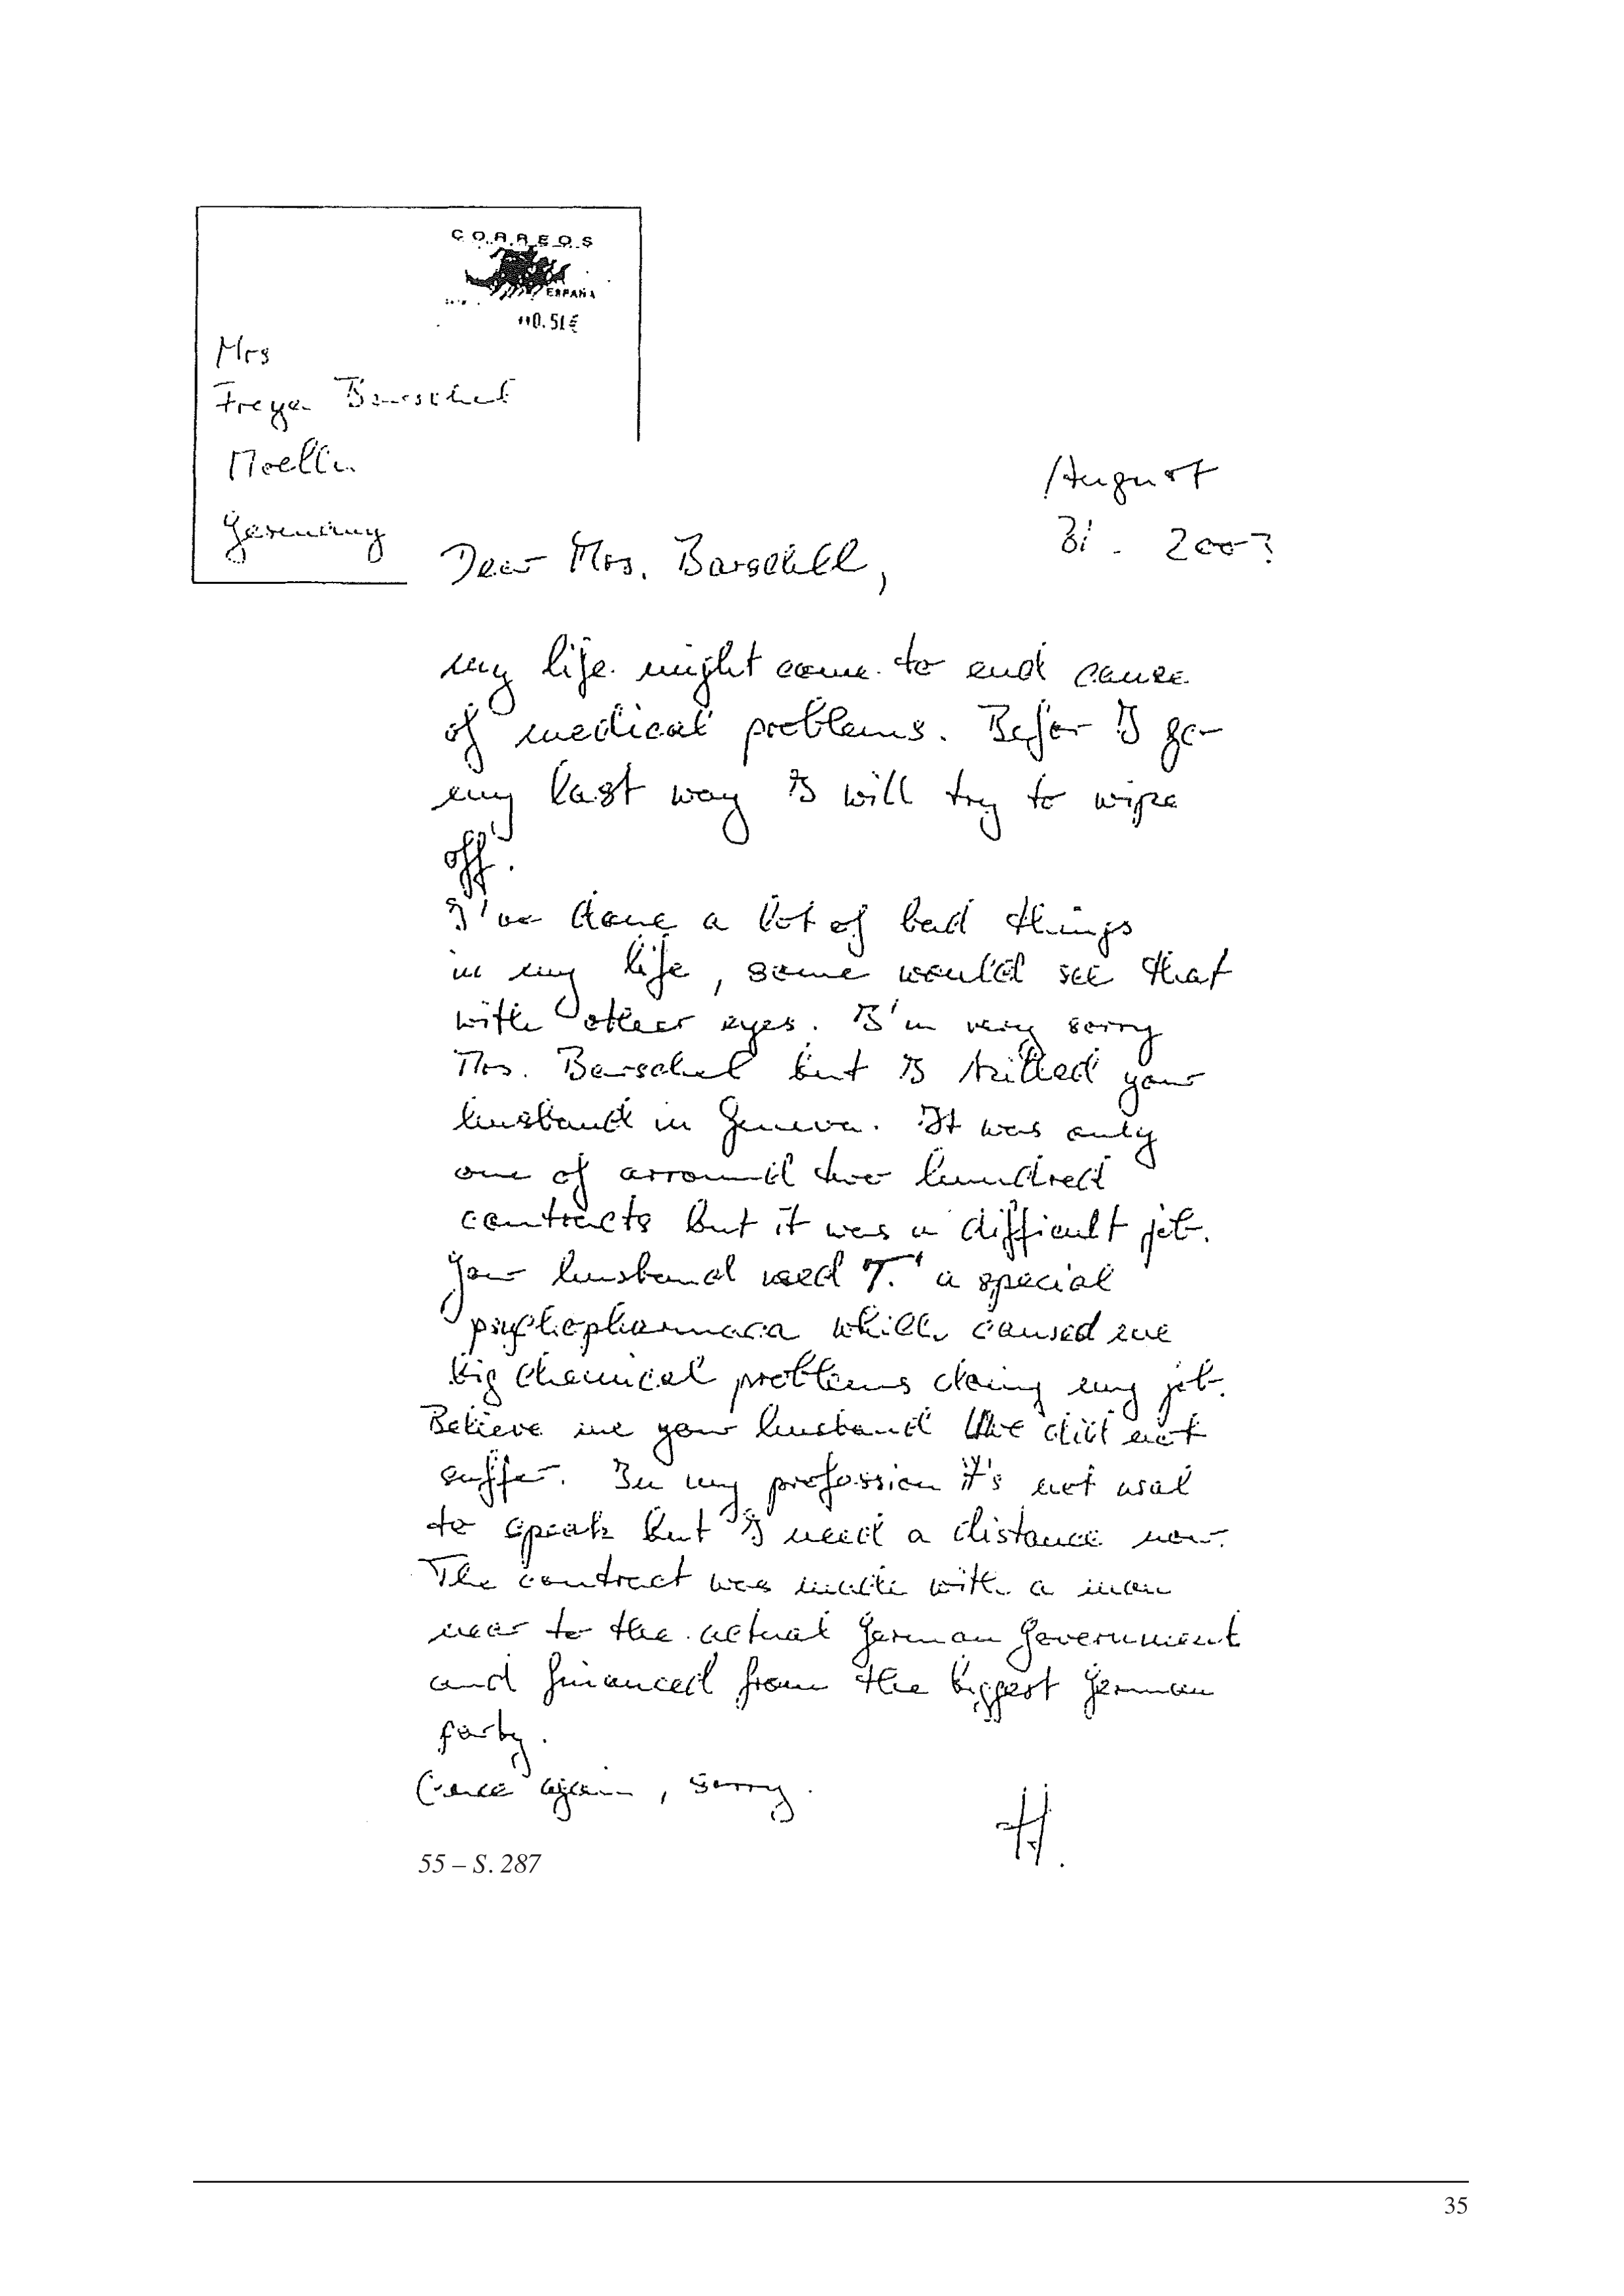 CORREOS
ESPAÑA
0.51€
Mrs
Freya Barschel
Moelln
Germany
August
31. 2003
Dear Mrs. Barschel,
my life might come to end cause
of medical problems. Befor I go
my last way I will try to wipe
off.
I've done a lot of bad things
in my life, some would see that
with other eyes. I'm very sorry
Mrs. Barschel but I killed your
husband in Geneva. It was only
one of arround two hundred
contracts but it was a difficult job.
Your husband used T. a special
psychopharmaca which caused me
big chemical problems doing my job.
Believe me your husband did not
suffer. In my profession it's not usal
to speak but I need a distance now.
The contract was made with a man
near to the actual german government
and financed from the biggest german
party.
Once again, sorry.
H.
55 – S. 287
35